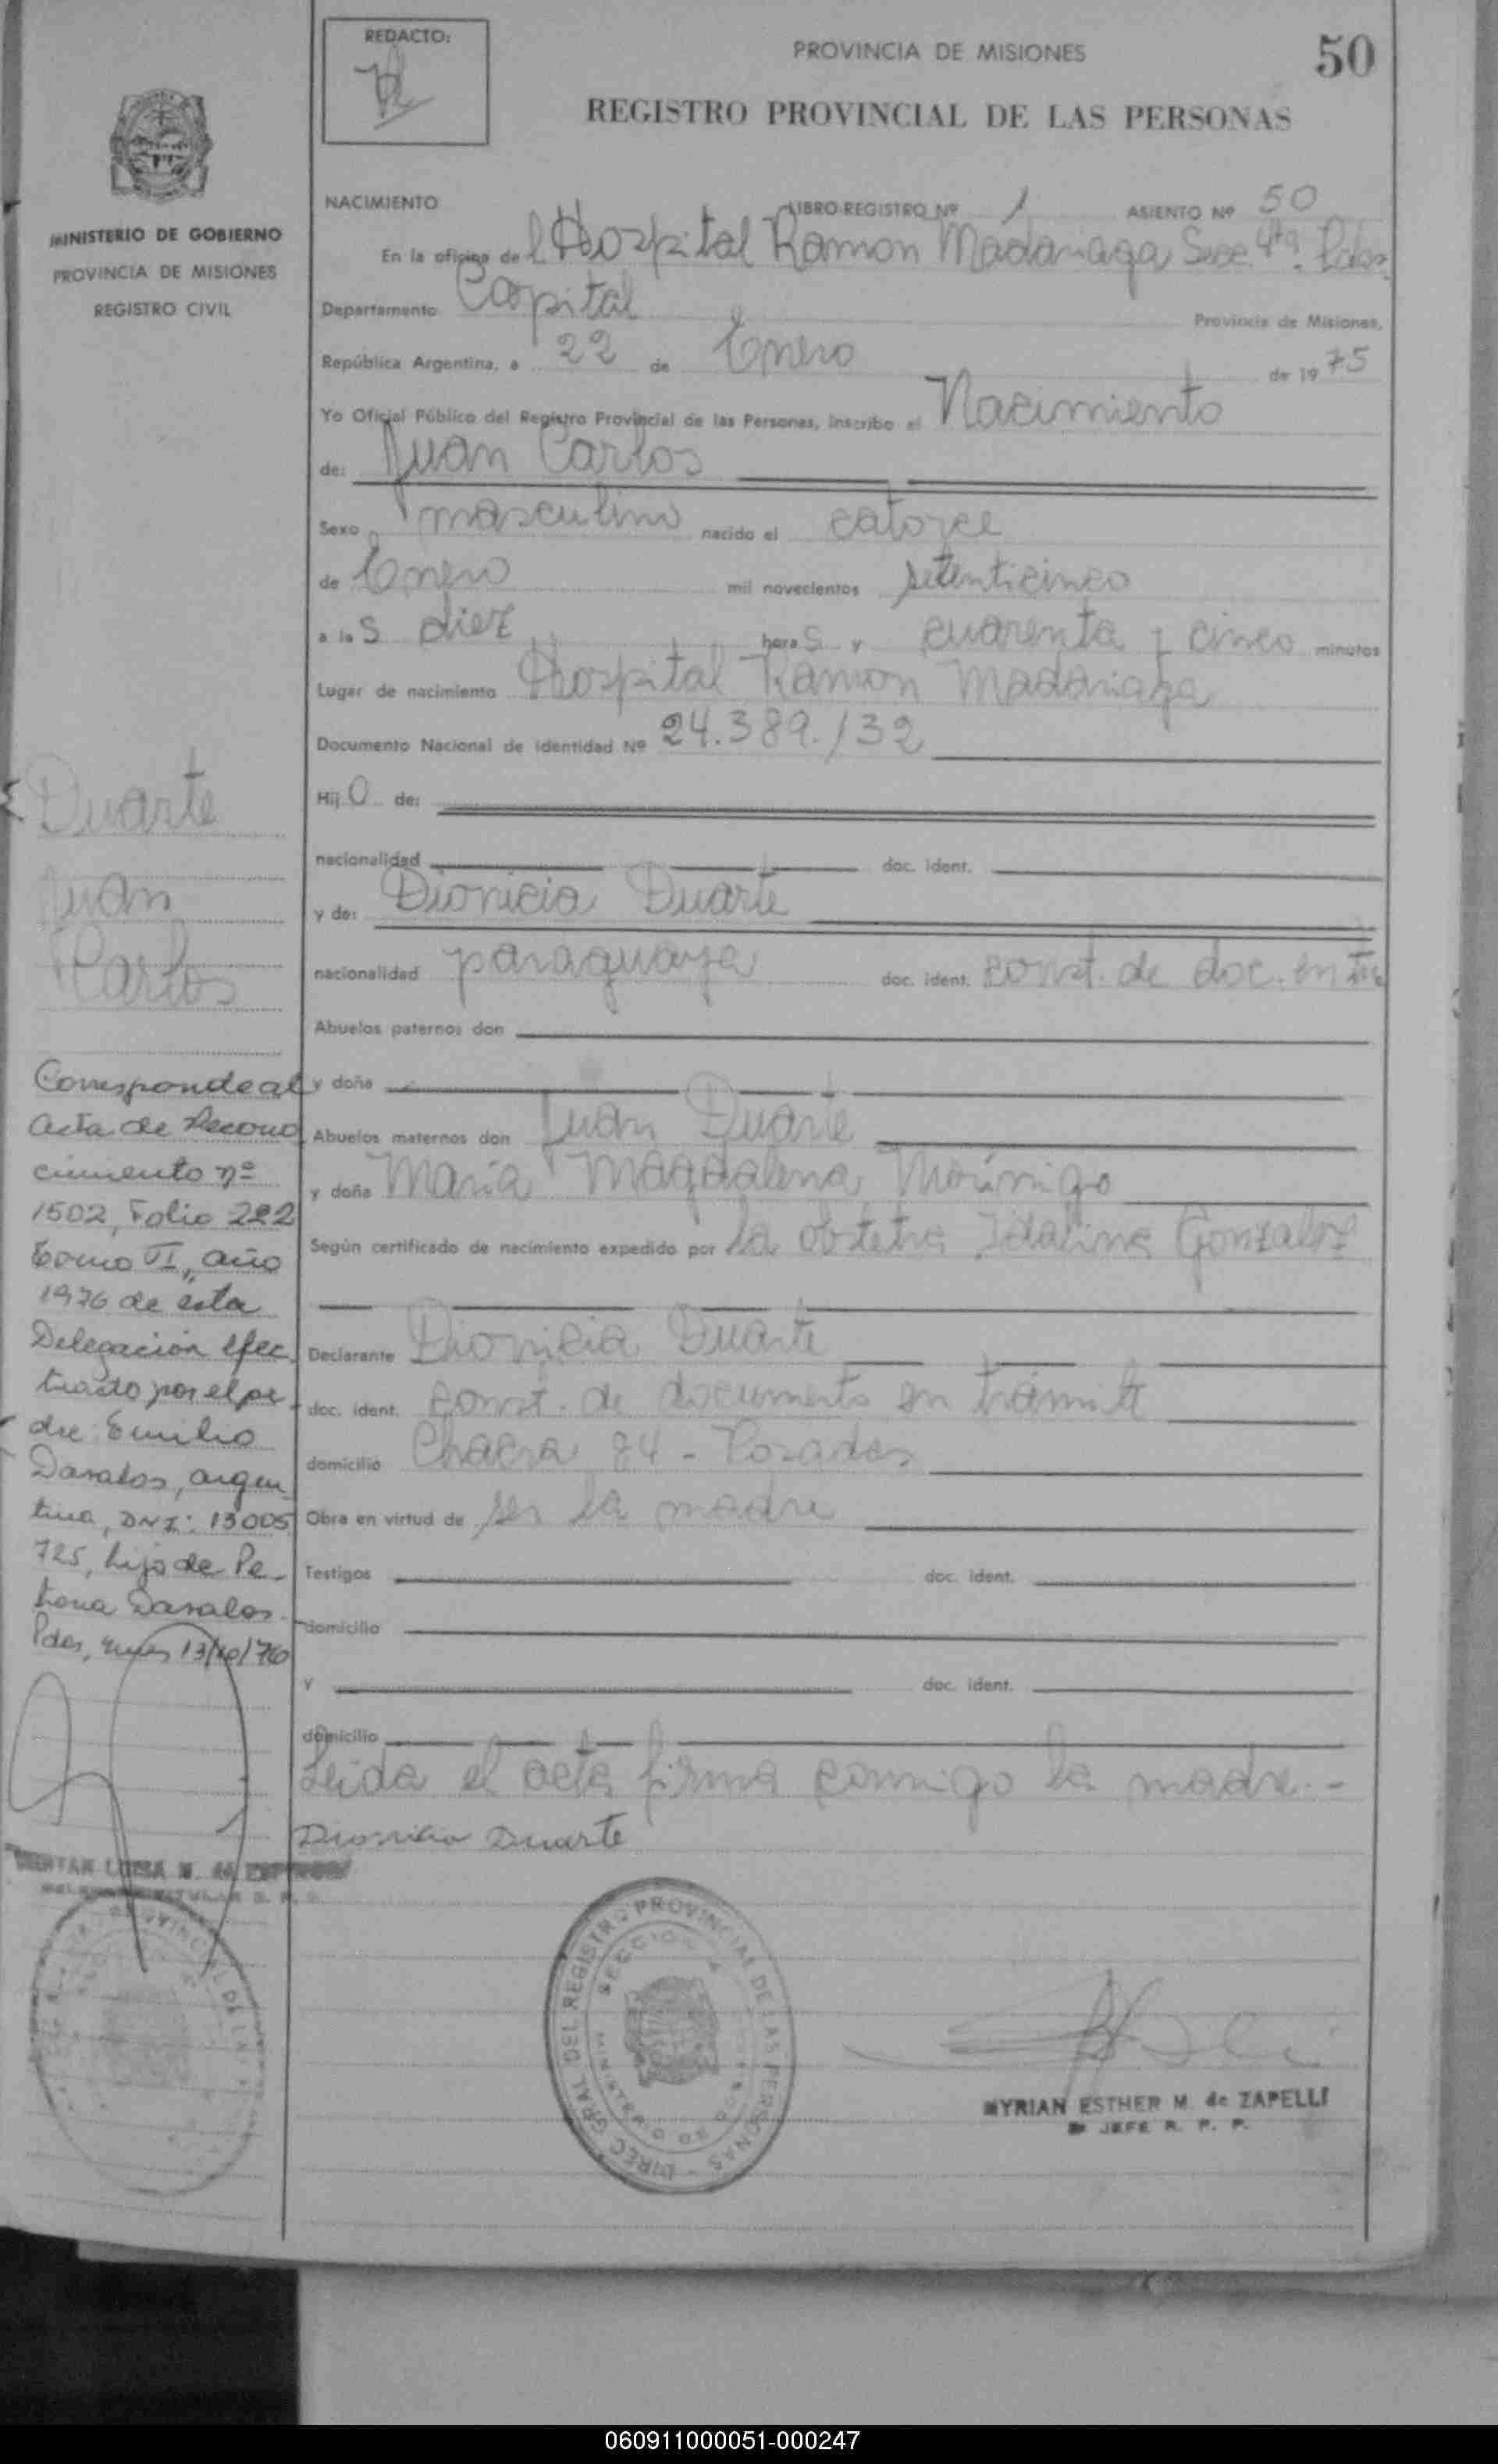 REDACTO:
PROVINCIA DE MISIONES
50
REGISTRO PROVINCIAL DE LAS PERSONAS
MINISTERIO DE GOBIERNO
PROVINCIA DE MISIONES
REGISTRO CIVIL
NACIMIENTO LIBRO-REGISTRO Nº 1 ASIENTO Nº 50
En la oficina del Hospital Ramon Madariaga Secc 4ta. Pdas.
Departamento Capital Provincia de Misiones,
República Argentina, a 22 de Enero de 1975
Yo Oficial Público del Registro Provincial de las Personas, inscribo el Nacimiento
de: Juan Carlos
Sexo masculino nacido el catorce
de Enero mil novecientos setenticinco
a las diez horas y cuarenta y cinco minutos
Lugar de nacimiento Hospital Ramon Madariaga
Documento Nacional de Identidad Nº 24.389.132
Hijo de:
nacionalidad doc. ident.
y de: Dionicia Duarte
nacionalidad paraguaya doc. ident. const. de doc. en
Abuelos paternos don
y doña
Abuelos maternos don Juan Duarte
y doña María Magdalena
Según certificado de nacimiento expedido por la obtetra Idalina Gonzalez
Declarante Dionicia Duarte
doc. ident. const. de documento en trámite
domicilio Chacra 84 - Posadas
Obra en virtud de ser la madre
Testigos doc. ident.
domicilio
y doc. ident.
domicilio
Leida el acta firma conmigo la madre.-
Dionicia Duarte
Duarte
Juan
Carlos
Corresponde al
acta de Recono
cimiento nº
1502, Folio 222
tomo VI, año
1976 de esta
Delegación efec
tuado por el pa
dre Emilio
Davalos, argen
tino, DNI: 13005
725, hijo de Pe-
trona Davalos.
Pdas, 13/10/76
DIREC GRAL DEL REGISTRO PROVINCIAL DE LAS PERSONAS
SECCION 4
MYRIAN ESTHER M. de ZAPELLI
JEFE R. P. P.
060911000051-000247